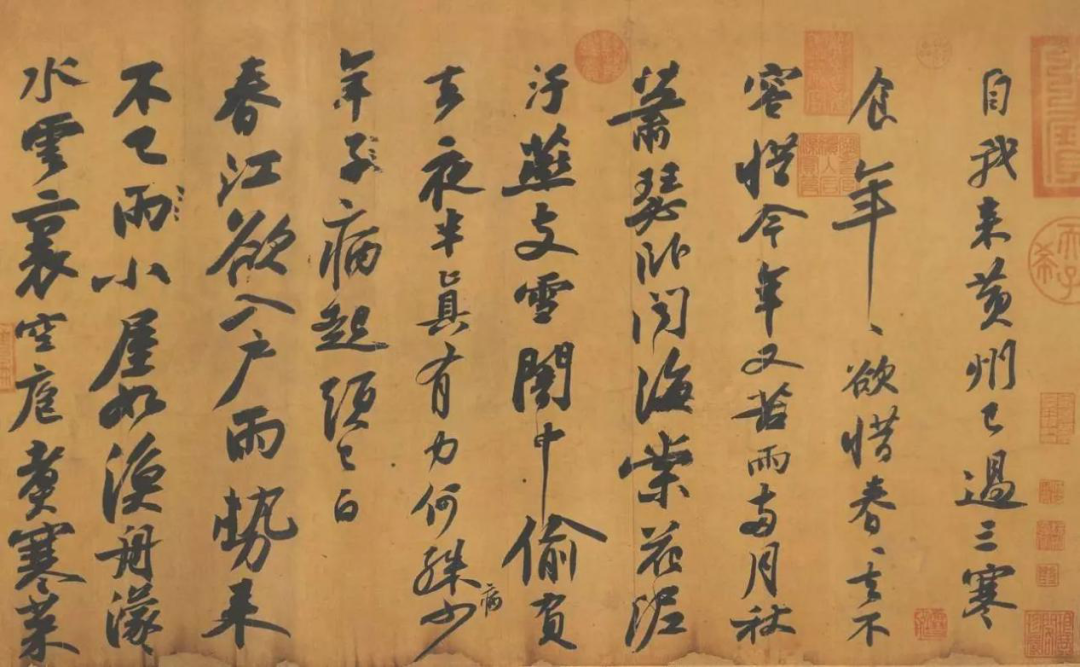 自我来黄州已過三寒
食年、欲惜春、去不
容惜今年又苦雨兩月秋
蕭瑟卧聞海棠花泥
汙燕支雪闇中偷負
去夜半真有力何殊病少
年子病起頭已白
春江欲入户雨勢来
不已雨小屋如漁舟濛
水雲裏空庖煮寒菜